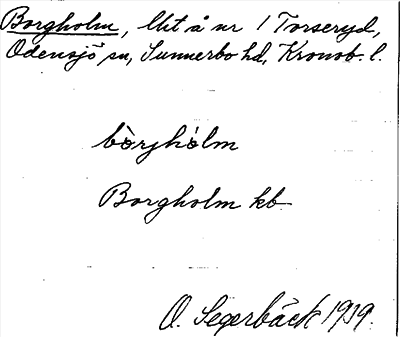 Borgholm, lht å nr 1 Torseryd,
Odensjö sn, Sunnerbo hd, Kronob. l.
bòrjhòlm
Borgholm kb
O. Segerbäck 1939.